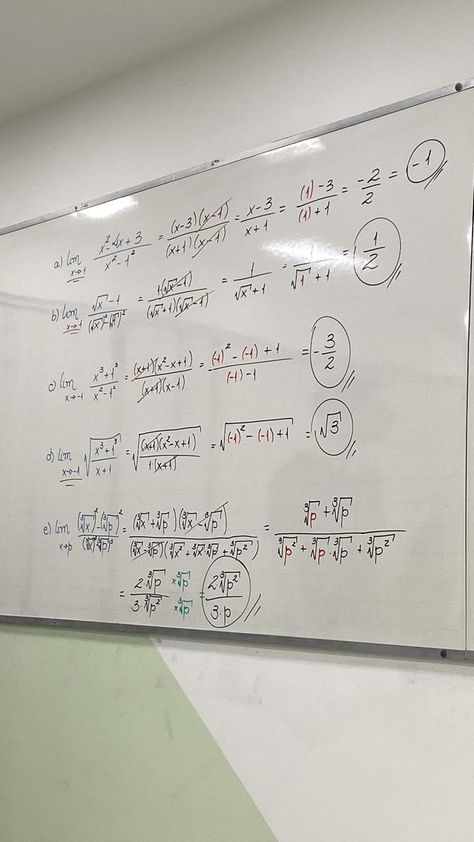 a) lim x→1 (x²-4x+3)/(x²-1²) = ((x-3)(x-1))/((x+1)(x-1)) = (x-3)/(x+1) = ((1)-3)/((1)+1) = -2/2 = -1
b) lim x→1 (√x-1)/((√x)²-(√1)²) = (1(√x-1))/((√x+1)(√x-1)) = 1/(√x+1) = 1/(√1+1) = 1/2
c) lim x→-1 (x³+1³)/(x²-1²) = ((x+1)(x²-x+1))/((x+1)(x-1)) = ((-1)²-(-1)+1)/((-1)-1) = -3/2
d) lim x→-1 √((x³+1³)/(x+1)) = √(((x+1)(x²-x+1))/(1(x+1))) = √((-1)²-(-1)+1) = √3
e) lim x→p ((∛x)²-(∛p)²)/((∛x)³-(∛p)³) = ((∛x+∛p)(∛x-∛p))/((∛x-∛p)(∛x²+∛x·∛p+∛p²)) = (∛p+∛p)/(∛p²+∛p·∛p+∛p²)
= (2∛p)/(3·∛p²) ×∛p/×∛p = (2∛p²)/(3·p)